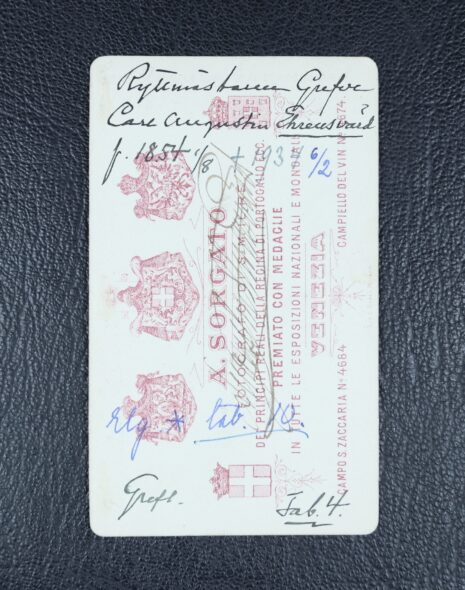 Ryttmästaren Grefve
Carl Augustin Ehrensvärd
f. 1854 5/8 + 1934 6/2
A. SORGATO
FOTOGRAFO DI S. M. IL RE
DEI PRINCIPI REALI DELLA REGINA DI PORTOGALLO ECC.
PREMIATO CON MEDAGLIE
IN TUTTE LE ESPOSIZIONI NAZIONALI E MONDIALI
VENEZIA
CAMPO S. ZACCARIA Nº 4684 CAMPIELLO DEL VIN Nº 4674
Elg * tab. 10.
Grefl.
Tab. 4.